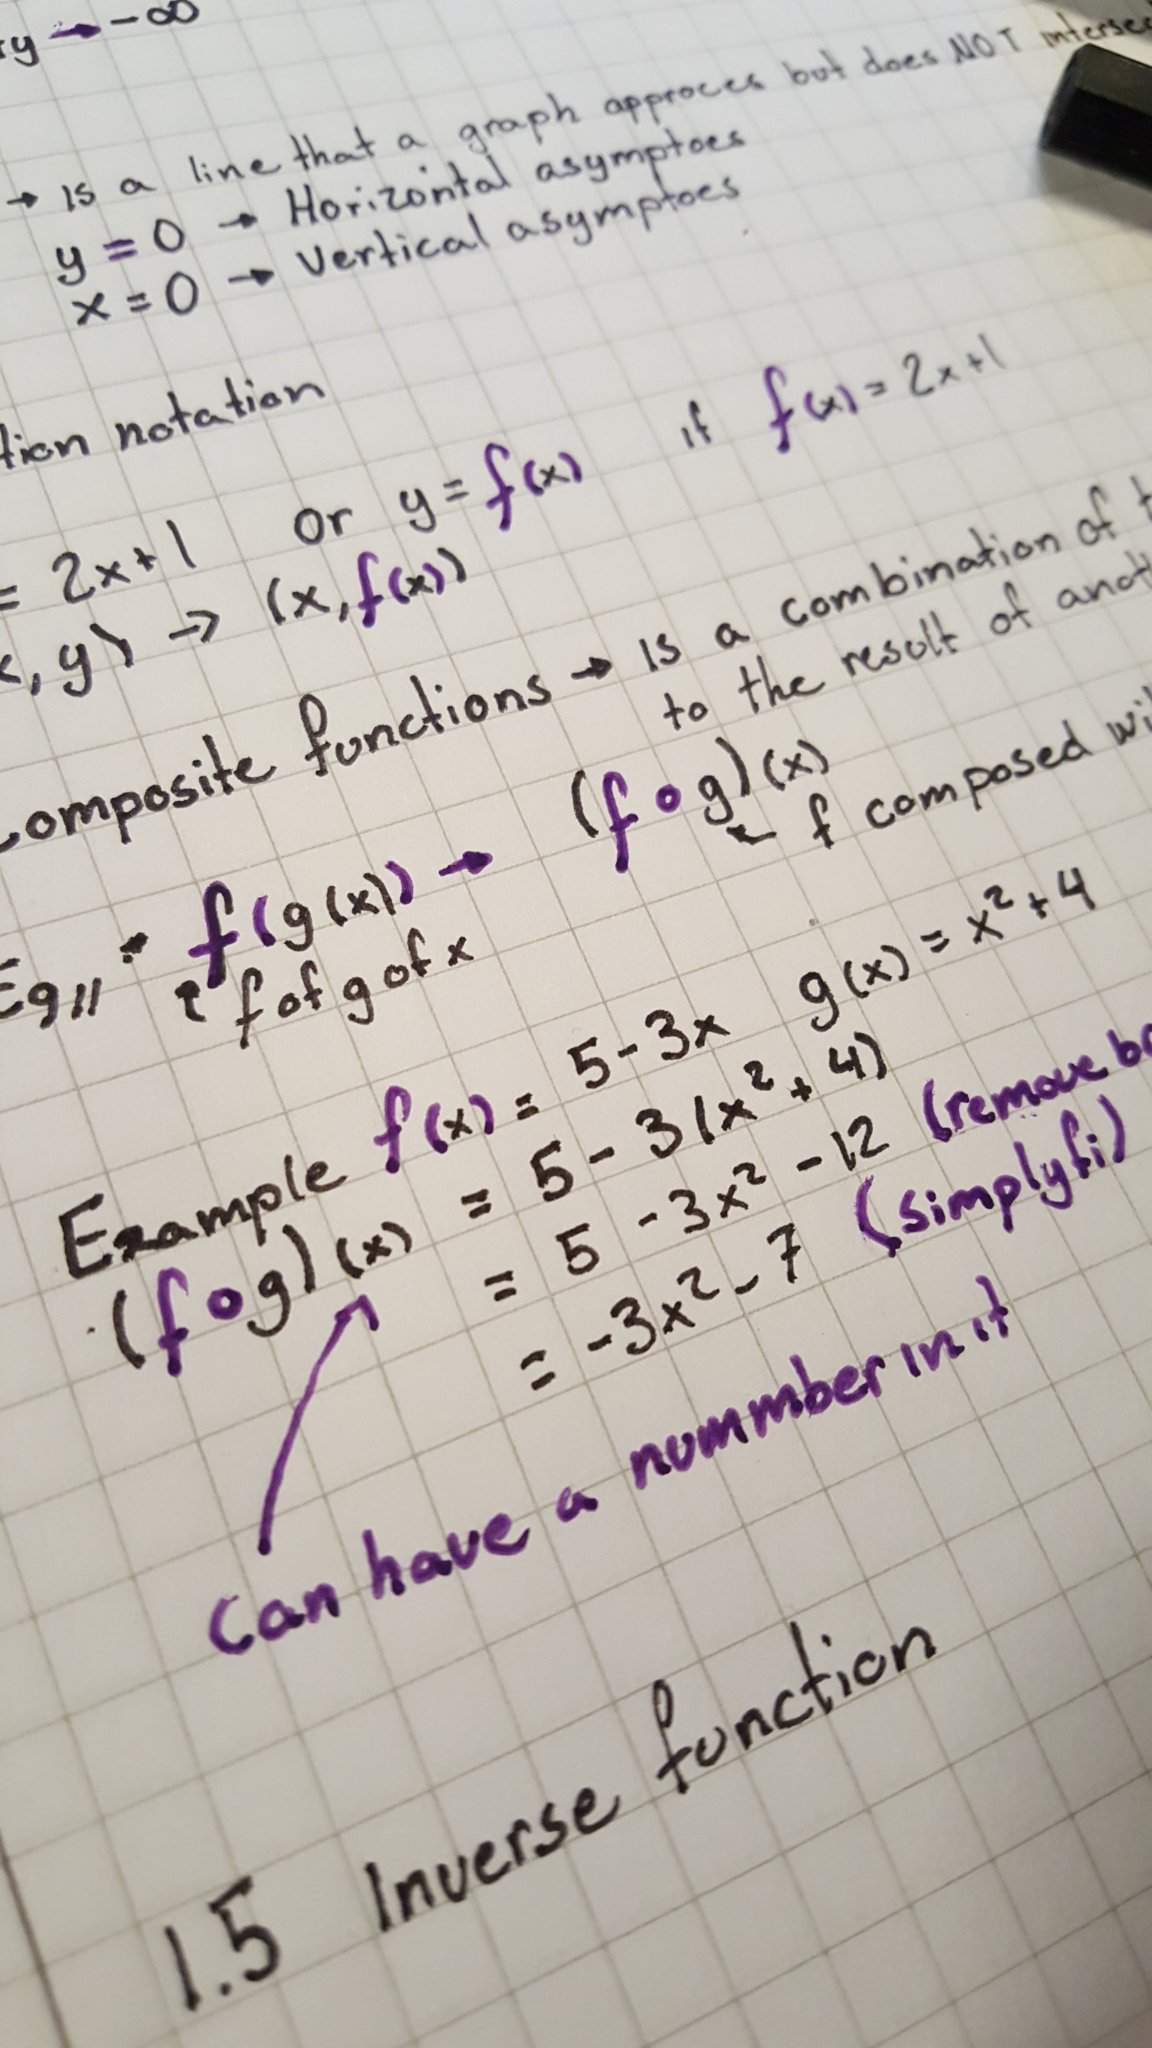 y → -∞
→ is a line that a graph approces but does NOT
y = 0 → Horizontal asymptoes
x = 0 → Vertical asymptoes
notation
= 2x+1 or y = f(x) if f(x) = 2x+1
, y) → (x, f(x))
Composite functions → is a combination of
to the result of
Eg// • f(g(x)) → (f∘g)(x)
f of g of x f composed
Example f(x) = 5-3x g(x) = x² + 4
(f∘g)(x) = 5 - 3(x² + 4)
= 5 - 3x² - 12 (remove
= -3x² - 7 (simplyfi)
can have a nummber in it
1.5 Inverse function